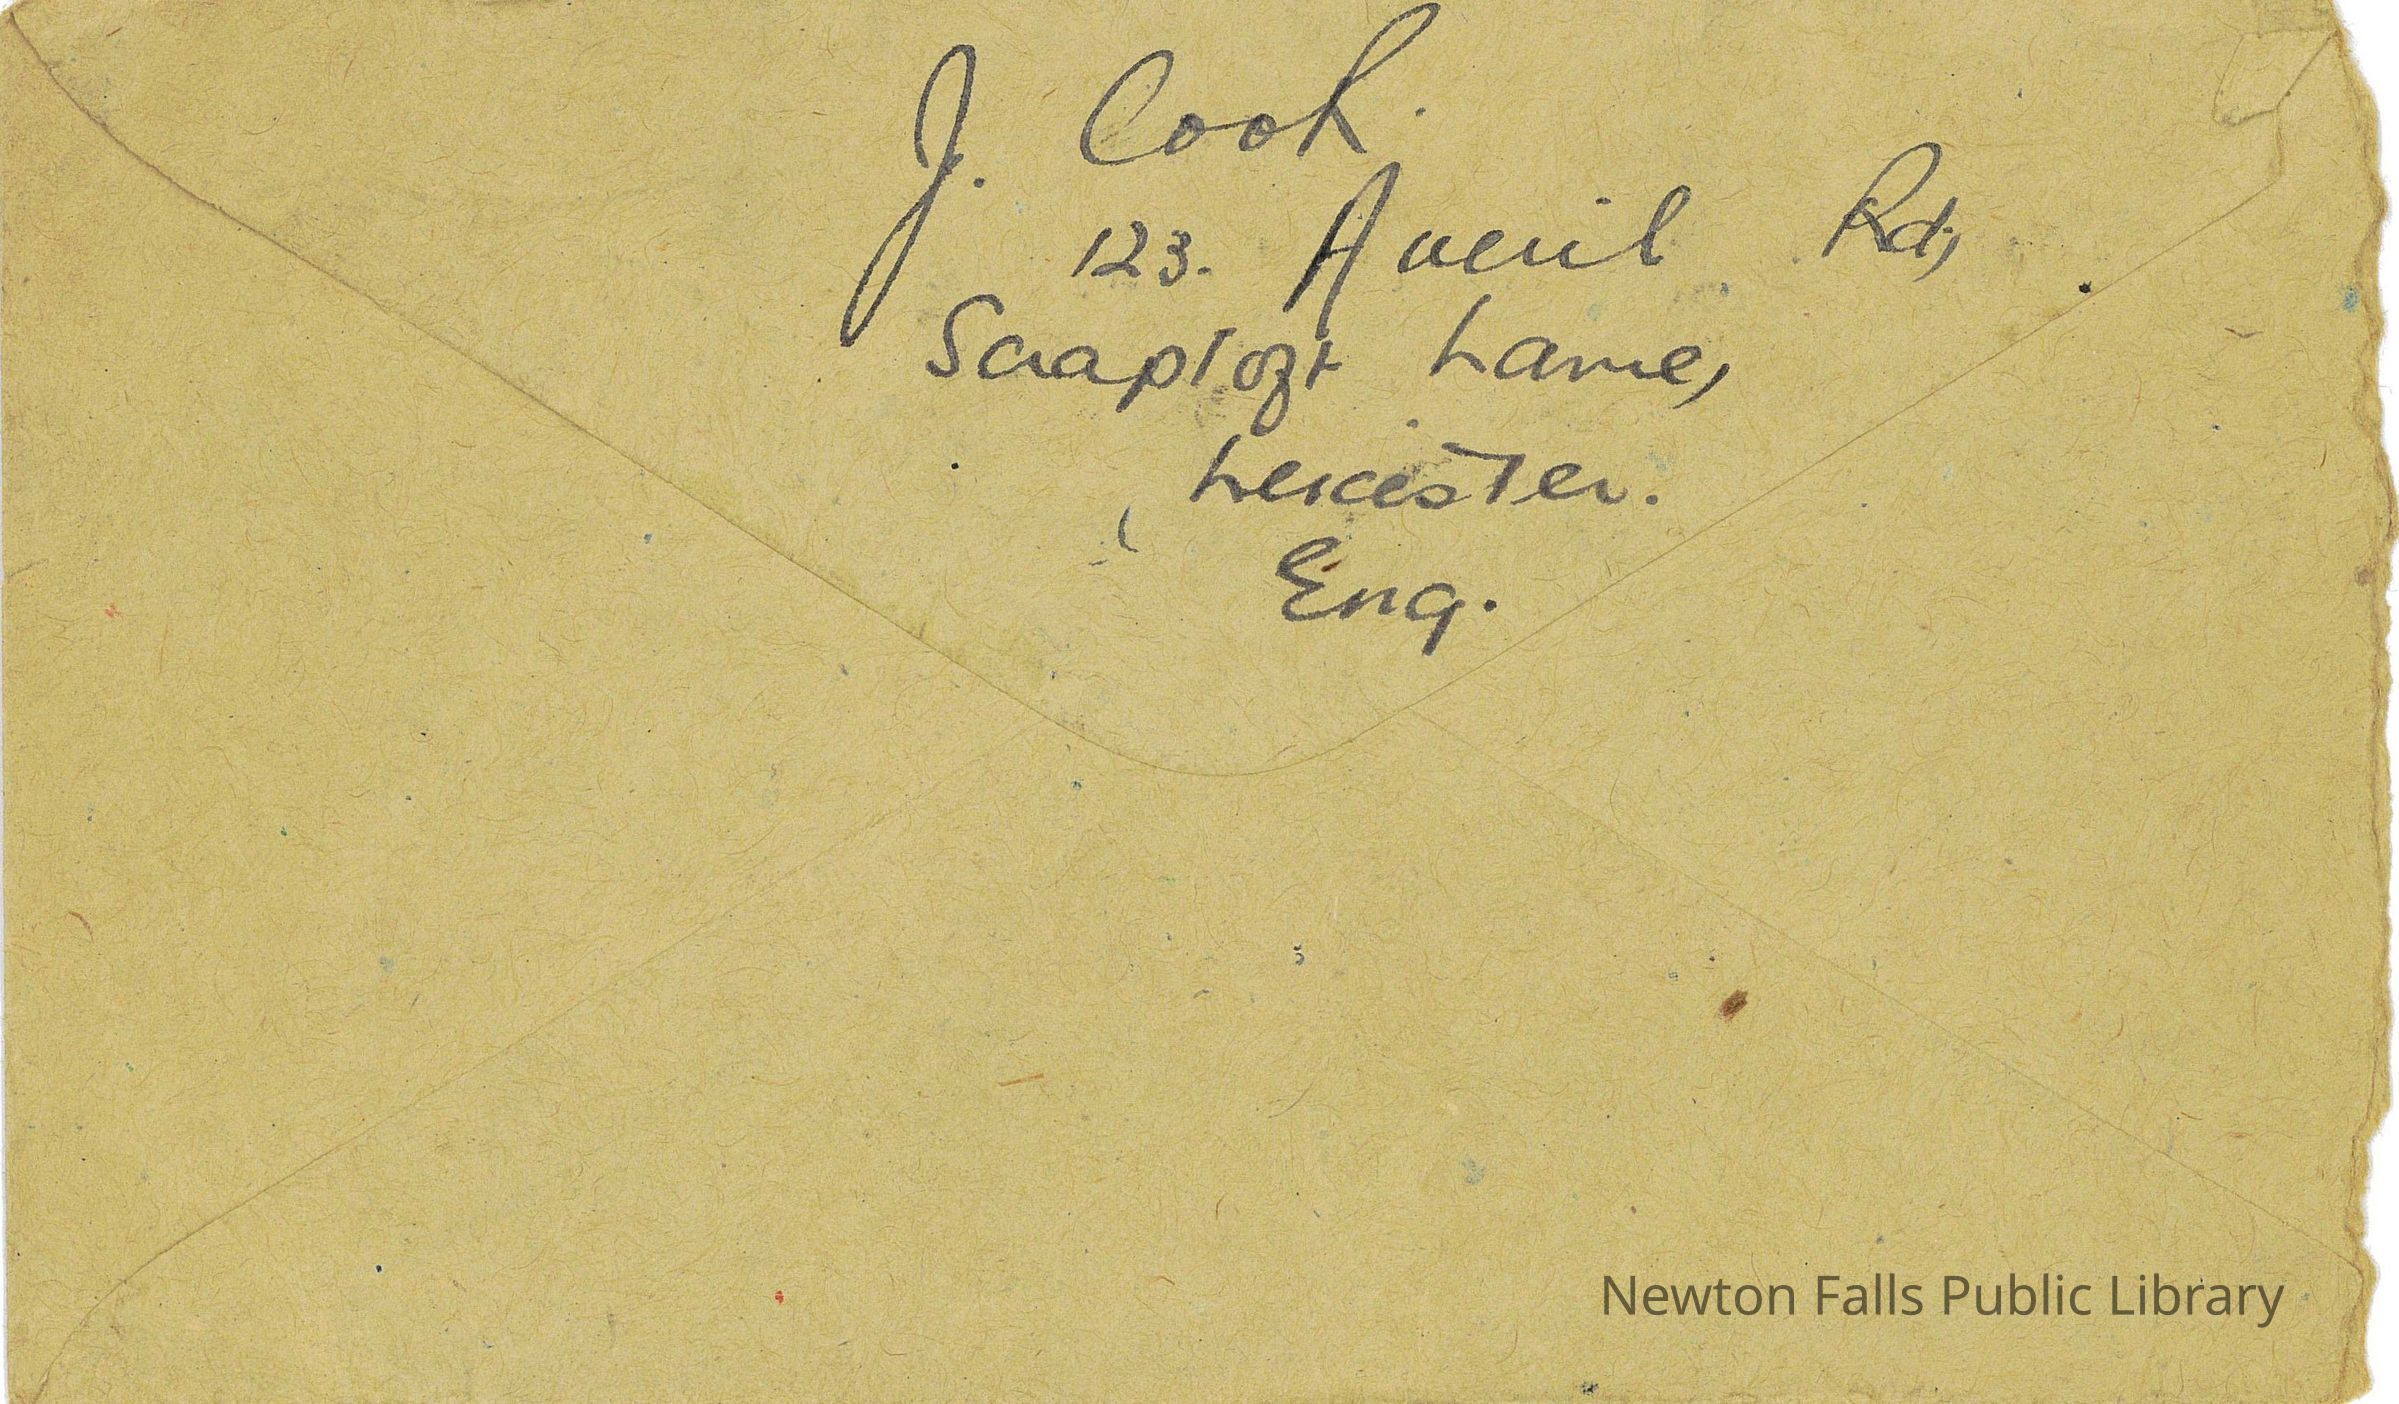 J. Cook.
123. Averil Rd,
Scraptoft Lane,
Leicester.
Eng.
Newton Falls Public Library